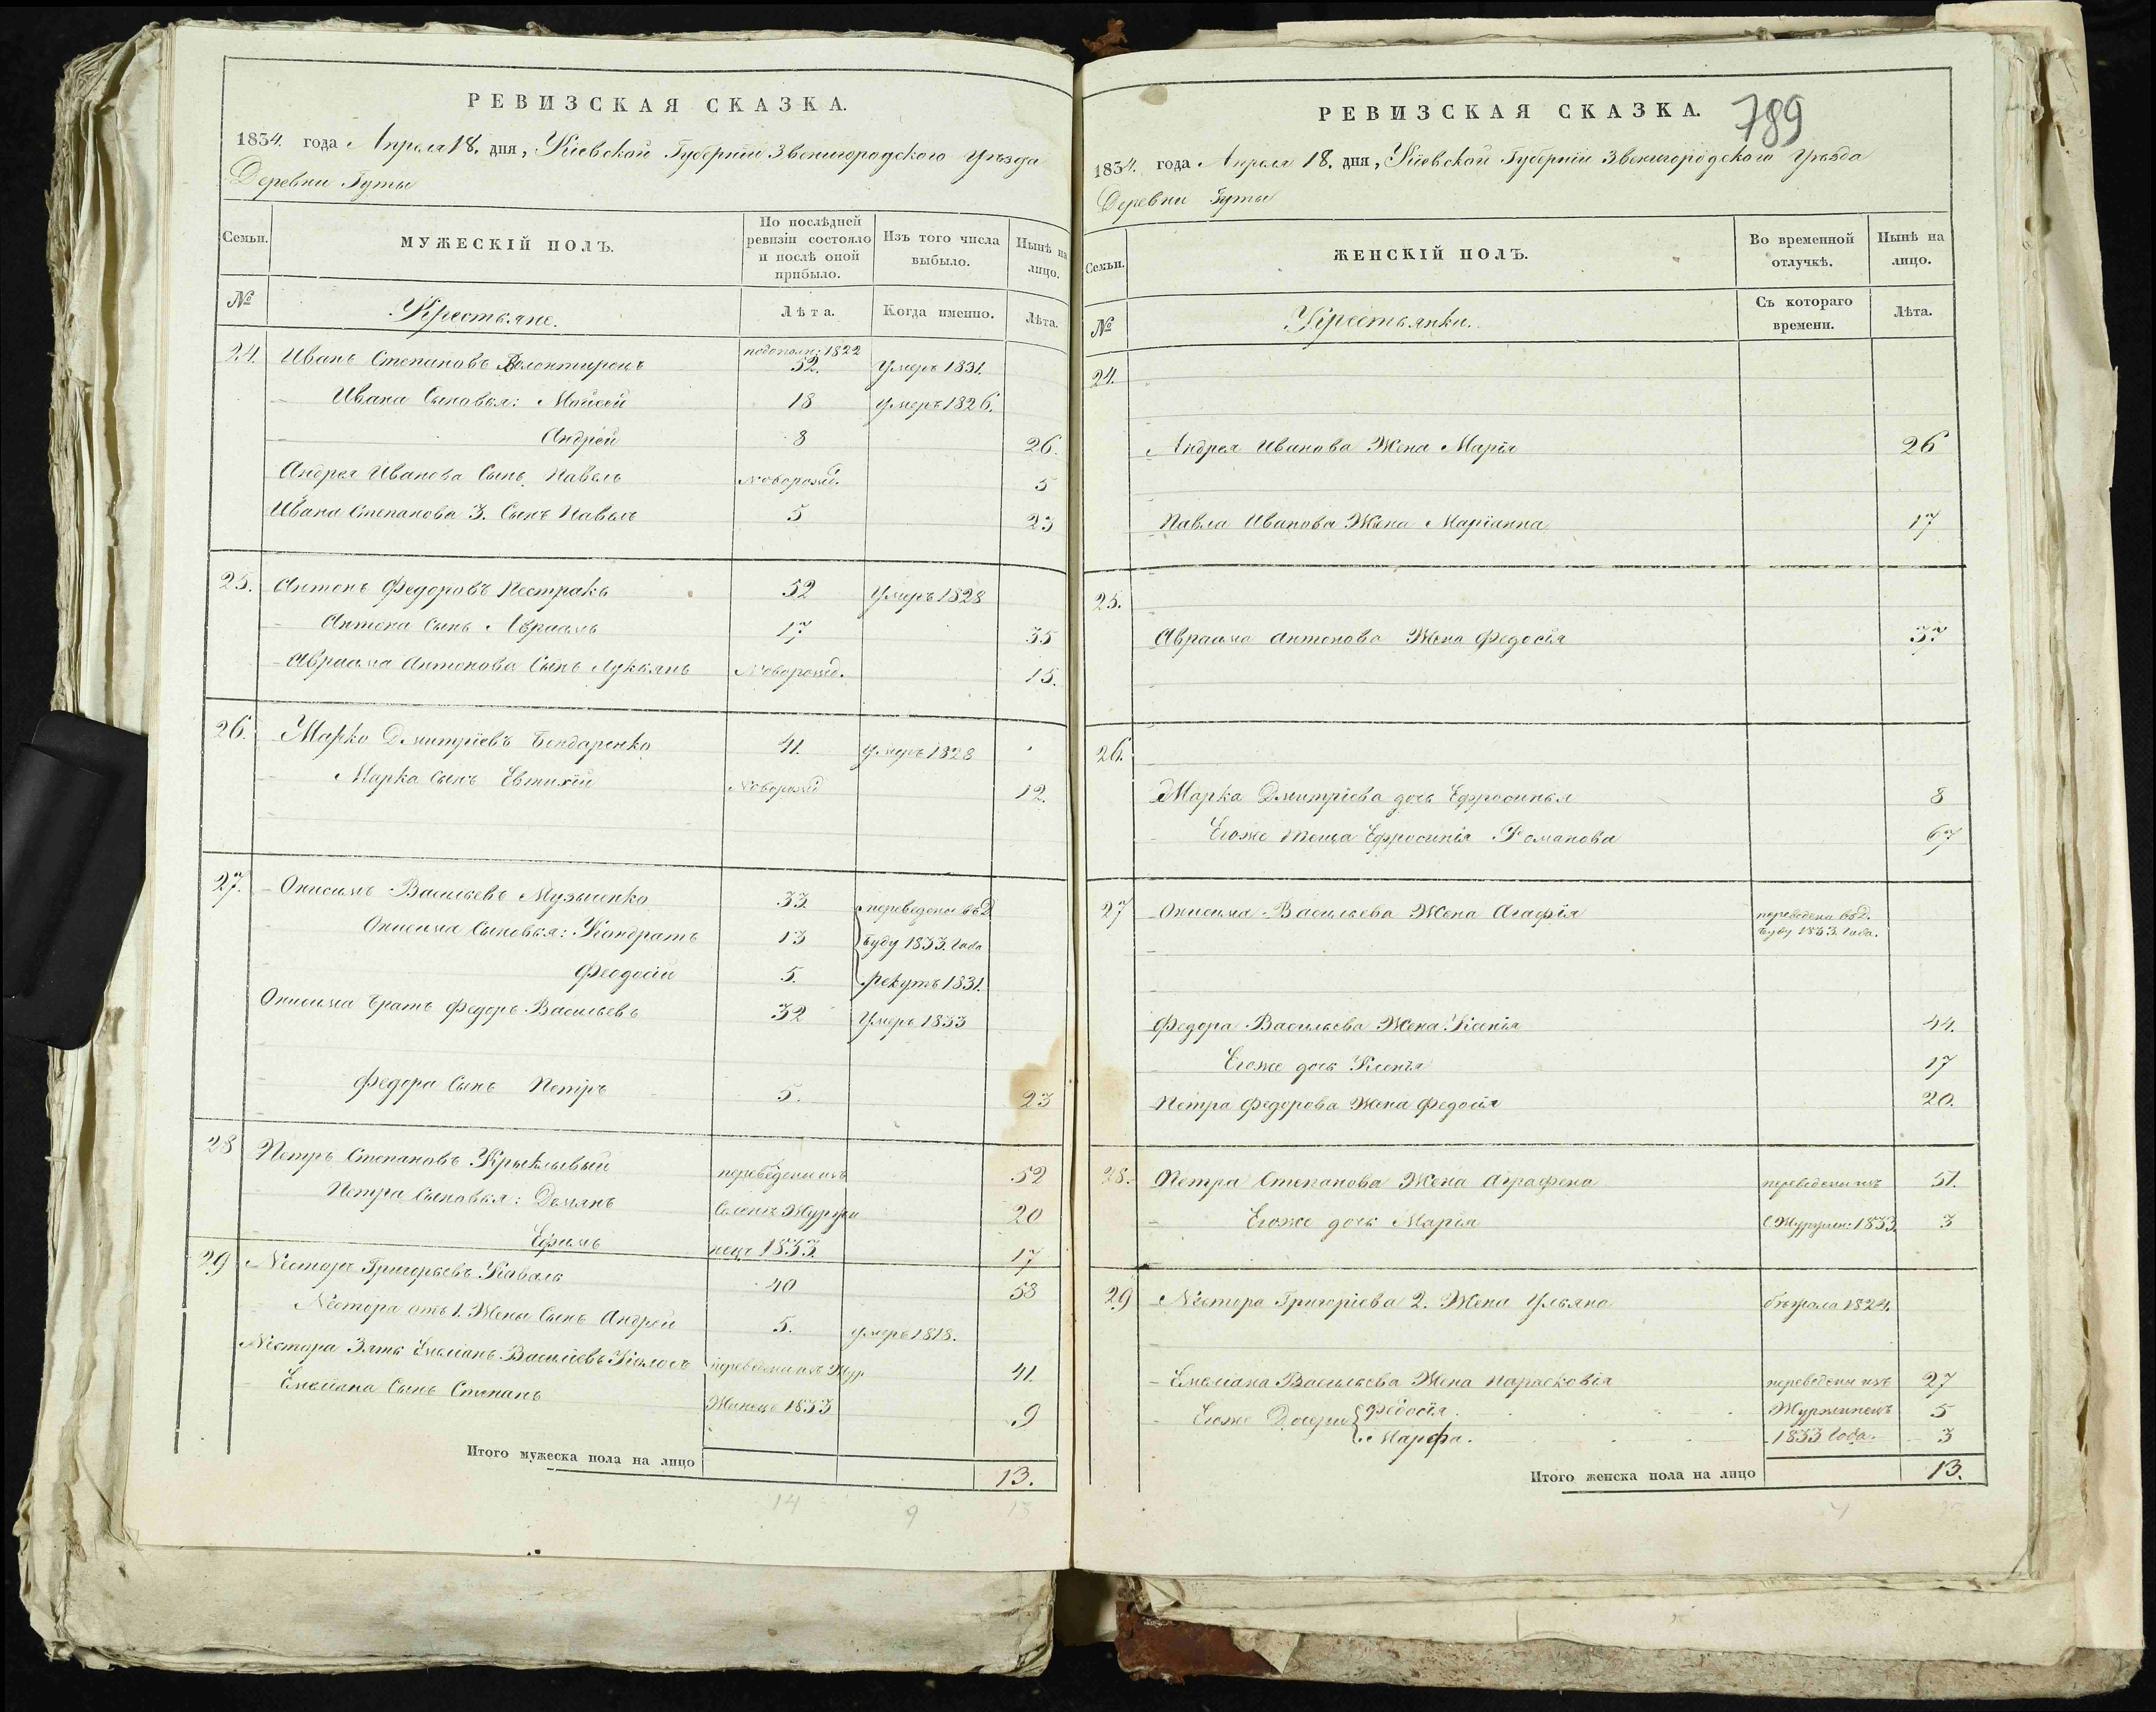 РЕВИЗСКАЯ СКАЗКА.
1834. года Апреля 18. дня, Кіевской Губерніи Звенигородского Уѣзда
Деревни Гуты
Семьи.
МУЖЕСКІЙ ПОЛЪ.
По послѣдней ревизіи состояло и послѣ оной прибыло.
Изъ того числа выбыло.
Нынѣ на лицо.
№
Крестьяне.
Лѣта.
Когда именно.
Лѣта.
24. Иванъ Степановъ 1822 52. Умеръ 1831.
Ивана Сыновья: Мойсей 18 умеръ 1826.
Андрей 8 26.
Андрея Иванова Сынъ Павелъ Новорожд. 5
Ивана Степанова 3. Сынъ Павелъ 5 23
25. Антонъ Федоровъ Пестракъ 52 Умеръ 1828
Антона Сынъ Авраамъ 17 35
Авраама Антонова Сынъ Лукьянъ Новорожд. 15.
26. Марко Дмитріевъ Бондаренко 41. умеръ 1828
Марка Сынъ Евтихій Новорожд 12.
27. Онисимъ Васильевъ Музыченко 33 переведены въ Д.
Онисима Сыновья: Кондратъ 13 Буду 1833. года
Феодосій 5. рекутъ 1831.
Онисима братъ Федоръ Васильевъ 32 Умеръ 1833
Федора Сынъ Петръ 5. 23
28 Петръ Степановъ Крыкливый переведены изъ 52
Петра Сыновья: Демянъ 20
Ефимъ 1833 17
29 Нестеръ Григорьевъ Коваль 40 58
Нестора отъ 1. Жены Сынъ Андрей 5. умеръ 1818.
Нестора Зять Емельянъ Василіевъ переведены изъ Жур 41.
Емельяна Сынъ Степанъ 1833 9
Итого мужеска пола на лицо 13.
14 9 13
РЕВИЗСКАЯ СКАЗКА.
789
1834. года Апреля 18. дня, Кіевской Губерніи Звенигородского Уѣзда
Деревни Гуты
Семьи.
ЖЕНСКІЙ ПОЛЪ.
Во временной отлучкѣ.
Нынѣ на лицо.
№
Крестьянки.
Съ котораго времени.
Лѣта.
24.
Андрея Иванова Жена Марія 26
Павла Иванова Жена Маріанна 17
25.
Авраама Антонова Жена Федосія 37
26.
Марка Дмитріева дочь Ефросинья 8
Егоже теща Ефросинія Романова 67
27 Онисима Васильева Жена Агафія переведена въ Д.
Буду 1833. года.
Федора Васильева Жена Ксенія 44.
Егоже дочь Ксенія 17
Петра Федорова Жена Федосія 20.
28. Петра Степанова Жена Аграфена переведены изъ 51.
Егоже дочь Марья 1833. 3
29 Нестора Григоріева 2. Жена Ульяна бѣжала 1824.
Емельяна Васильева Жена Парасковія переведены изъ 27
Егоже Дочери Федосія. Журжинець 5
Марфа. 1833 года. 3
Итого женска пола на лицо 13.